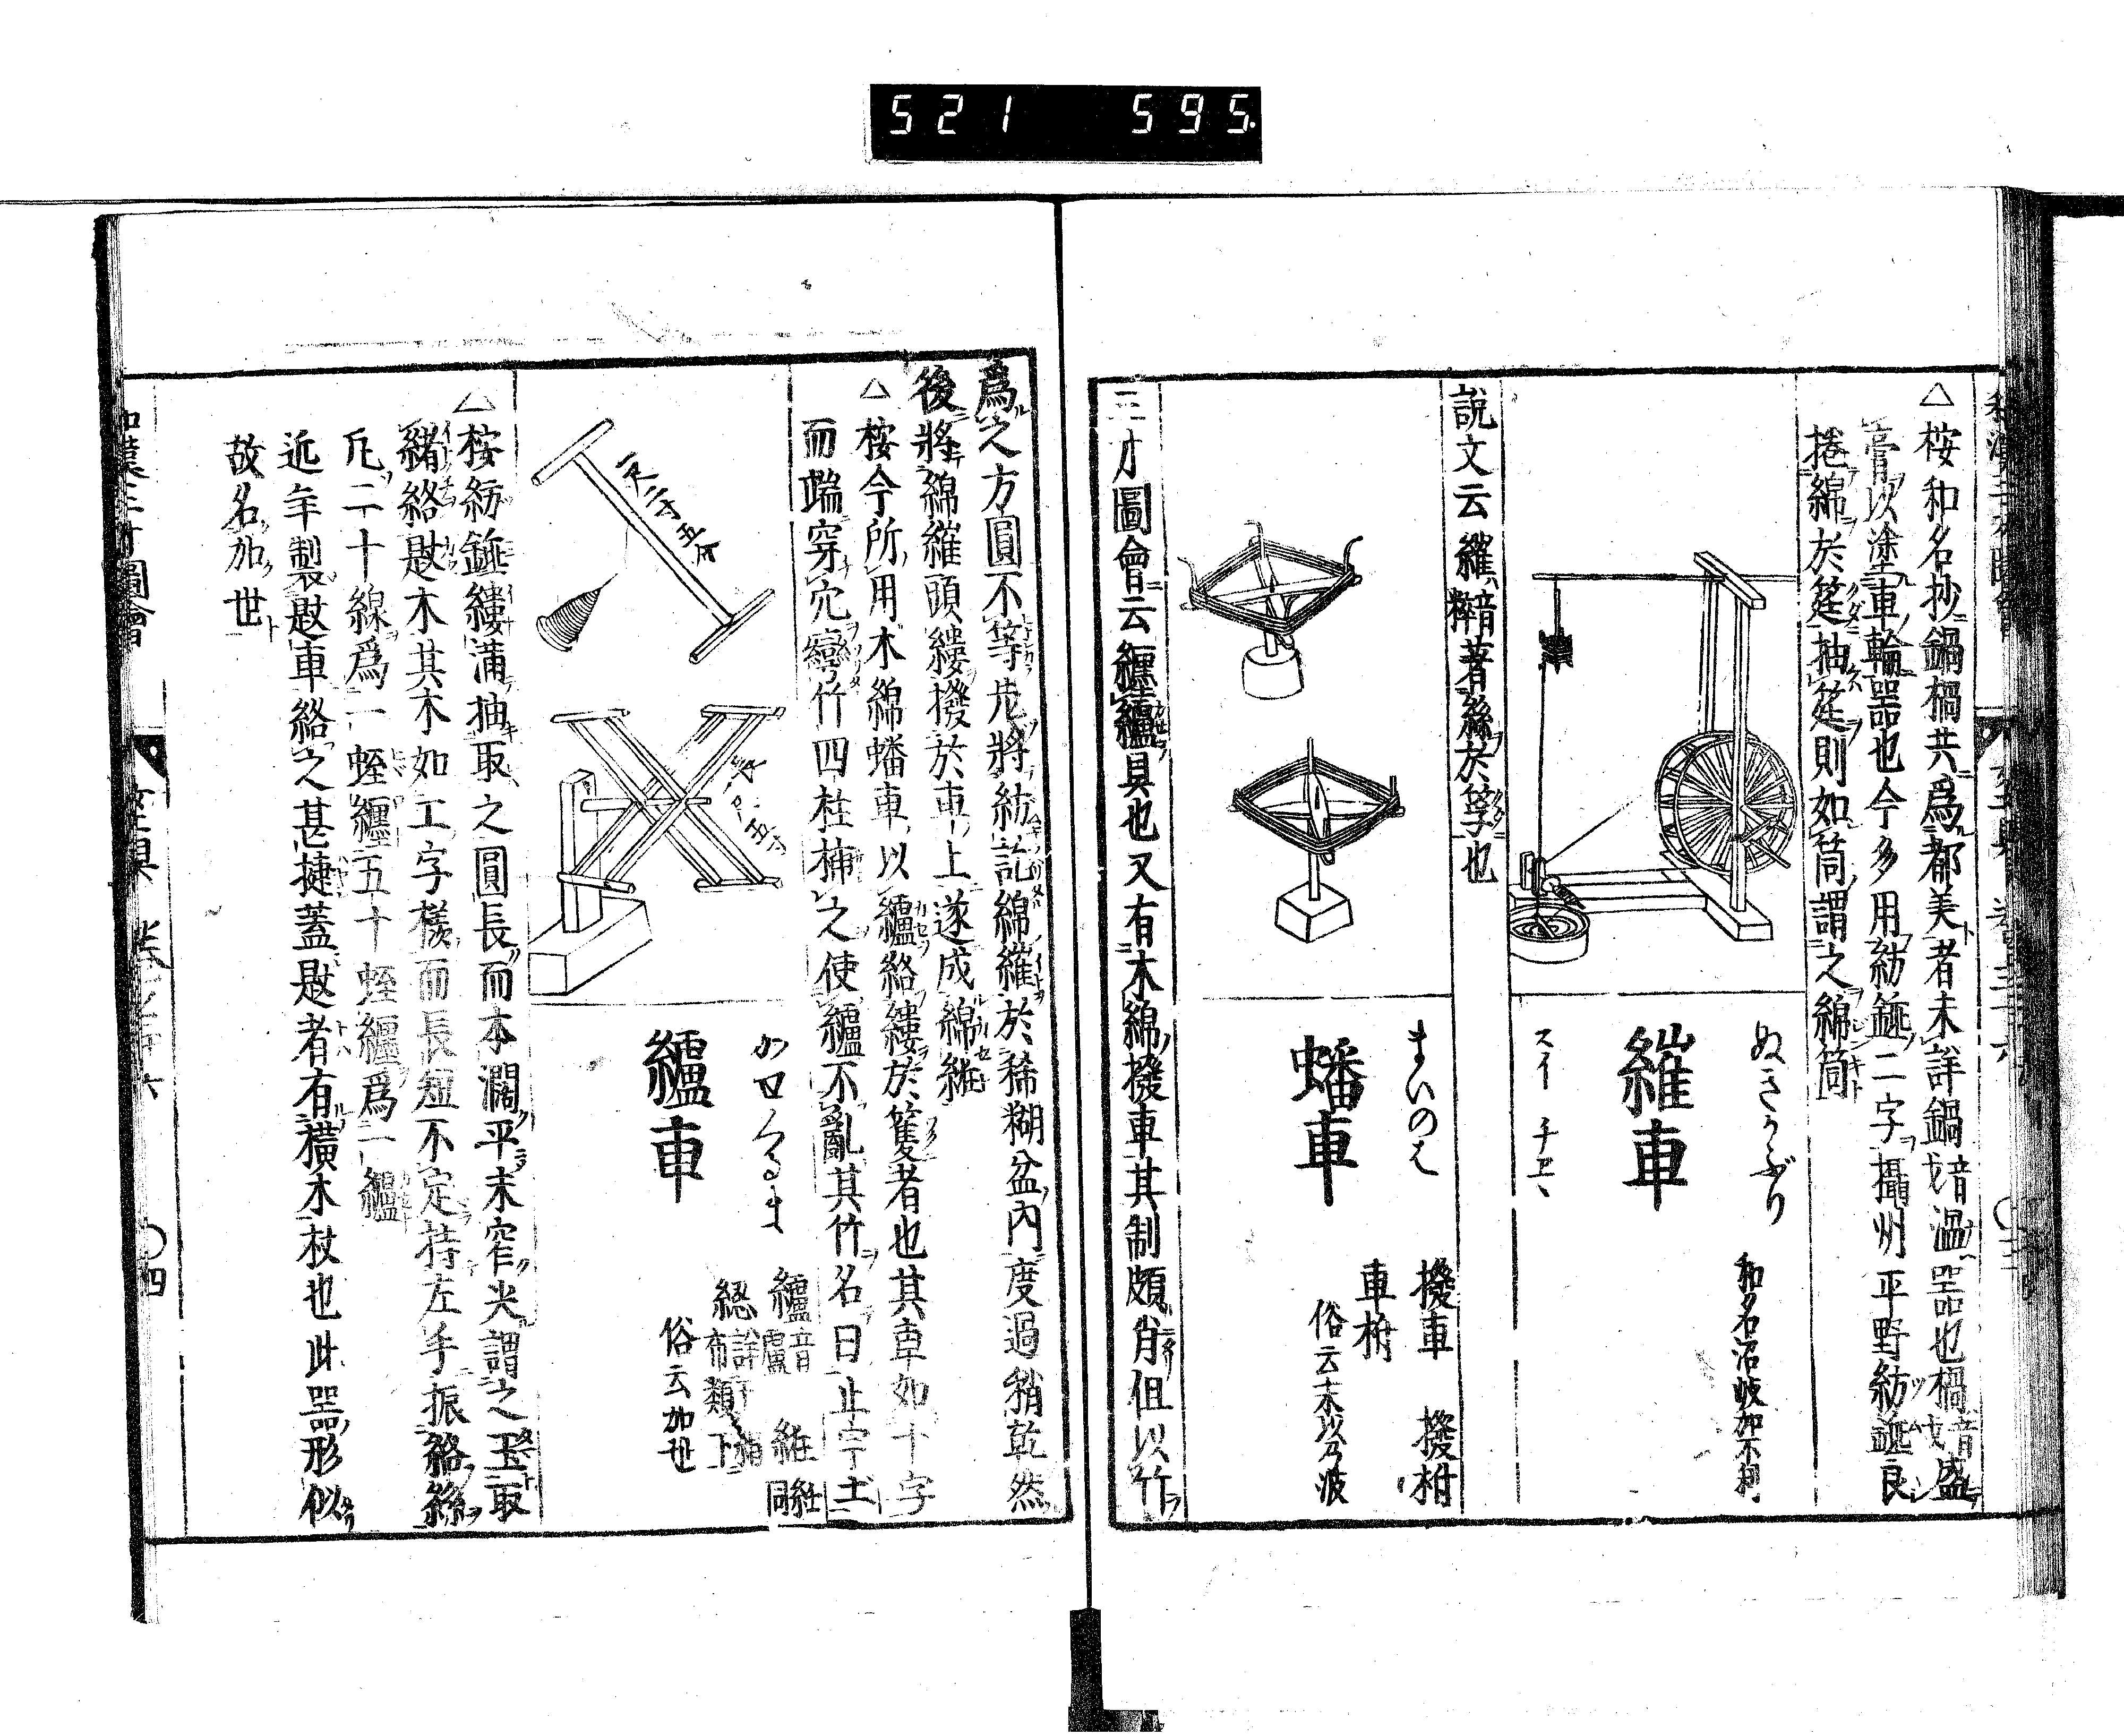 521 595.
△桉和名抄鍋楇共爲都美者未詳鍋音戈溫器也楇音戈盛
膏以塗車輪器也今多用紡錘二字攝州平野紡錘良
捲綿於筳抽筳則如筒謂之綿筒
ぬきかぶり
和名沼岐加不利
繀車
スイ チエヽ
說文云繀音粹著絲於筟也
まいのは
撥車 撥柎
車柎
俗云末以乃波
蟠車
三才圖會云纏纑具也又有木綿撥車其制頗肖但以竹
爲之方圓不等凢將紡訖綿繀於稀糊盆內度過稍乾然
後將綿繀頭縷撥於車上遂成綿維
△桉今所用木綿蟠車以纑絡縷於篗者也其車如十字
而端穿穴彎竹四柱揷之使纑不亂其竹名曰止宇土
一尺二寸五分
一尺五寸
かせくるま
纑音盧 維
俗云加世
纑車
△桉紡錘縷滿抽取之圓長而本濶平末窄尖謂之玉取
緖絡敁木其木如工字樣而長短不定持左手振絡絲
凢二十線爲一蛵纏五十蛵纏爲一纑
近年製敁車絡之甚揵蓋敁者有橫木杖也此器形似
故名加世
和漢三才圖會
卷之三十六
〇四